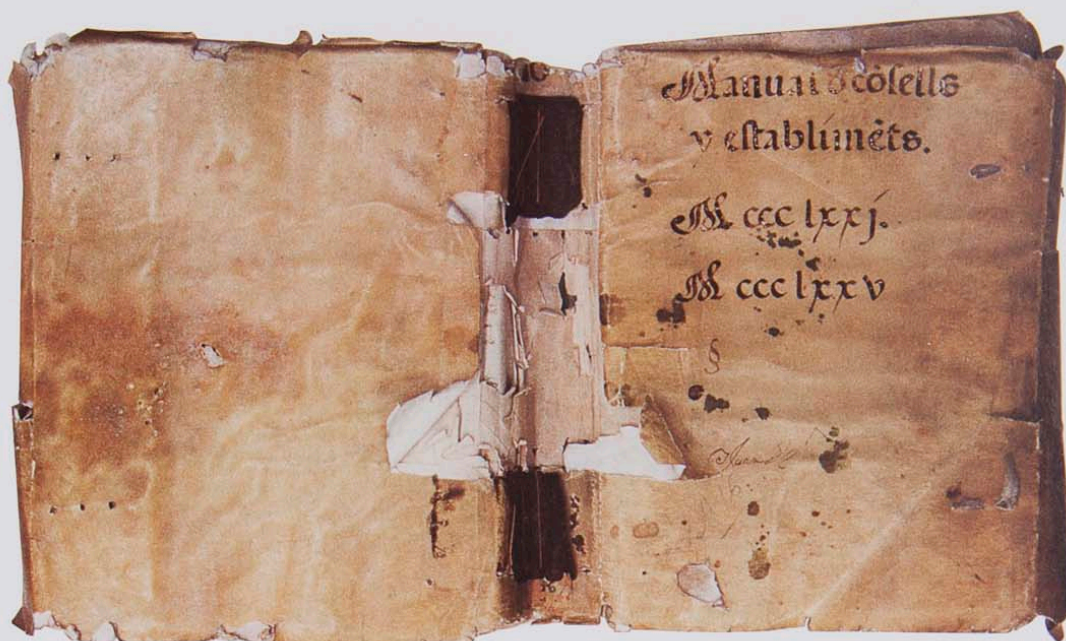 Manual d cõsells
y establimẽts.
M ccc lxxj.
M ccc lxx v
§